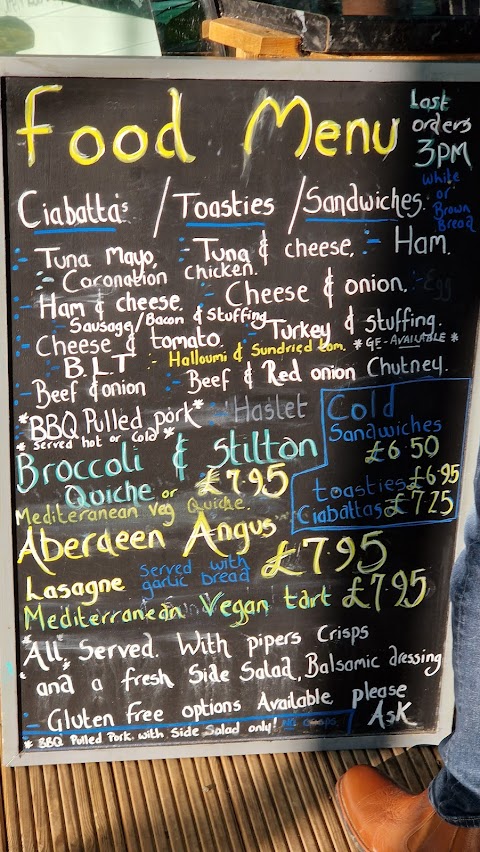 Food Menu
Last
orders
3PM
White
or
Brown
Bread
Ciabatta's / Toasties / Sandwiches.
- Tuna Mayo, - Tuna & cheese, - Ham.
- Coronation Chicken.
- Ham & cheese. - Cheese & onion. - Egg
- Sausage/Bacon & Stuffing
- Cheese & tomato. - Turkey & stuffing.
- B.L.T - Halloumi & Sundried tom. *GF-AVAILABLE*
- Beef & onion - Beef & Red onion Chutney.
*BBQ Pulled pork* - Haslet
* Served hot or cold *
Cold
Sandwiches
£6.50
toasties £6.95
Ciabattas £7.25
Broccoli & Stilton
Quiche or £7.95
Mediteranean Veg Quiche.
Aberdeen Angus
Lasagne Served with
garlic bread £7.95
Mediterranean Vegan tart £7.95
*All, Served. With pipers Crisps
and a fresh Side Salad, Balsamic dressing
- Gluten free options Available, please
Ask
* BBQ Pulled Pork with Side Salad only!